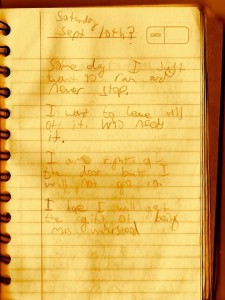 Saturday
Sept 10th
Some days I just
want to run and
never stop.
I want to leave all
of it. Who needs
it.
I am right at
the door but I
will not go in.
I
the gift of being
mis understood